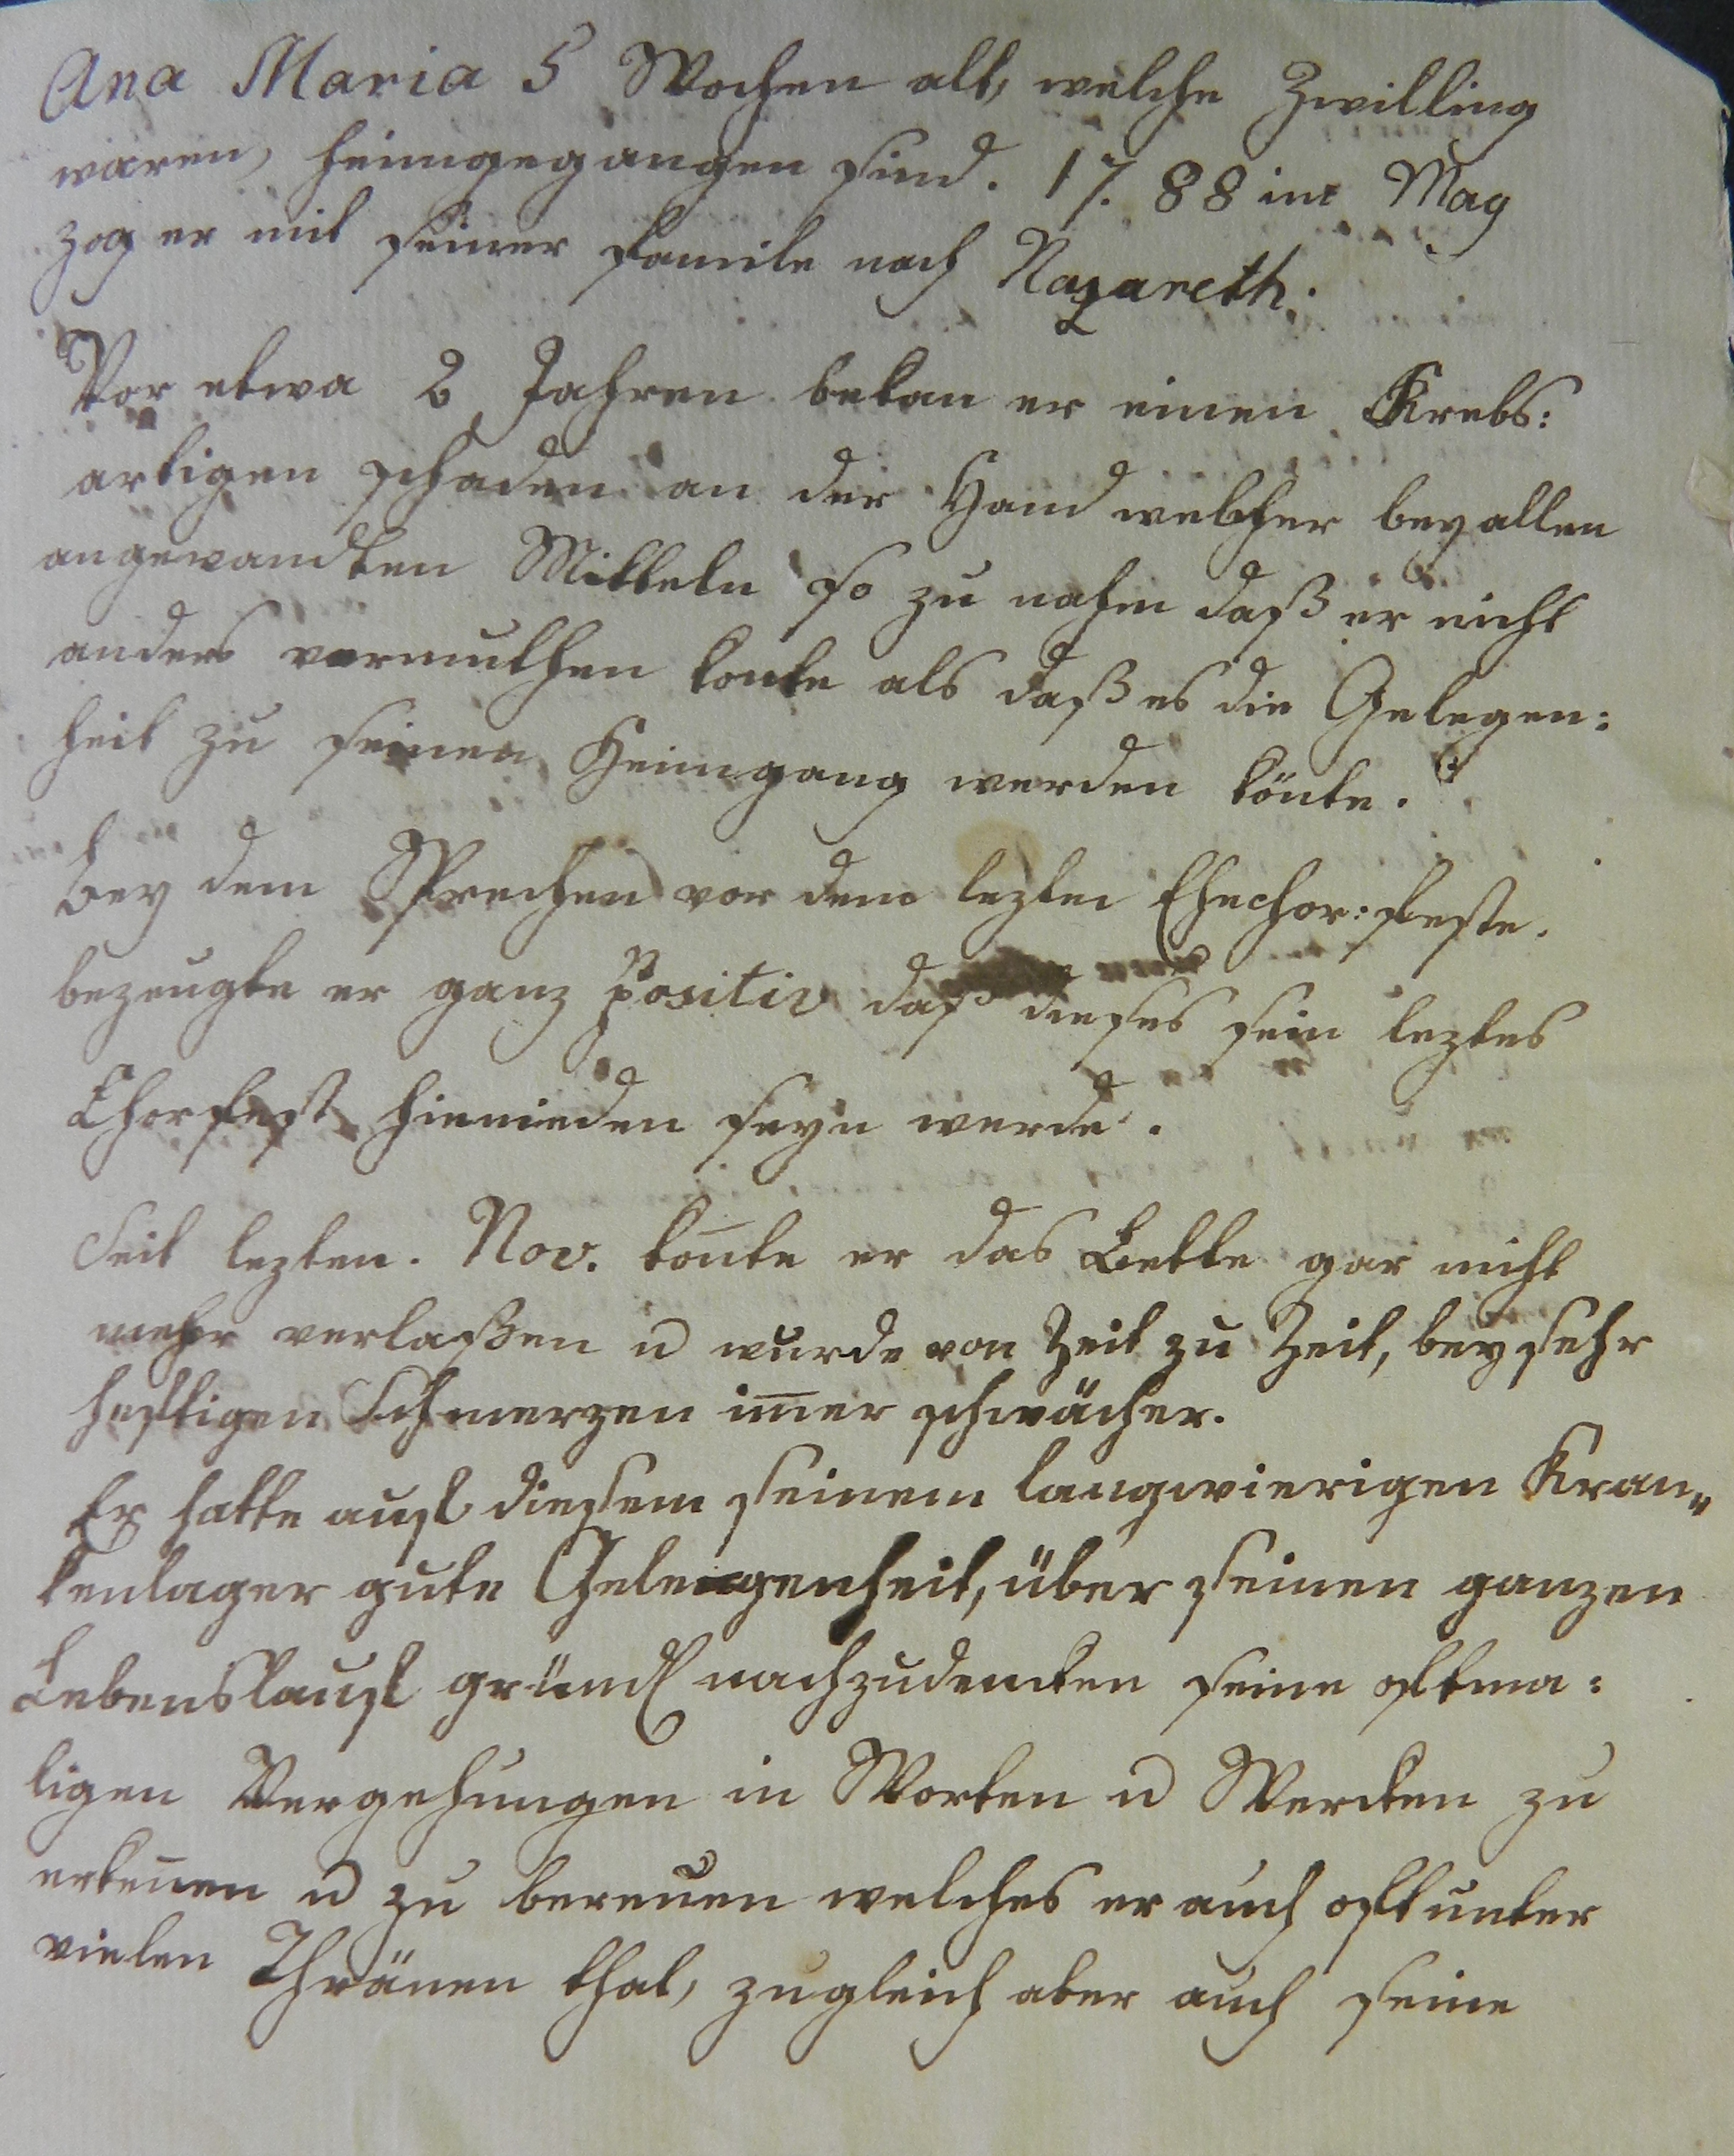 Ana Maria 5 Wochen alt, welche Zwilling
waren, heimgegangen sind. 17.88 im May
zog er mit seiner Familie nach Nazareth.
Vor etwa 2 Jahren bekan er einen Krebs:
artigen schaden an der Hand welcher bey allen
angewandten Mitteln so zu nahm daß er nicht
anders vermuthen konte als daß es die Gelegen:
heit zu seinen Heimgang werden könte.
Bey dem Sprechen vor dem lezten Ehechor: feste.
bezeugte er ganz positiv daß dieses sein leztes
Chorfest hienieden seyn werde.
Seit lezten. Nov. konte er das Bette gar nicht
mehr verlaßen u wurde von Zeit zu Zeit, bey sehr
heftigen Schmerzen im̄er schwächer.
Er hatte auf diesem seinem langwierigen Kran„
kenlager gute Gelegenheit, über seinen ganzen
Lebenslauf gründl nachzudencken seine oftma:
ligen Vergehungen in Worten u Wercken zu
erken̄en u zu bereuen welches er auch oft unter
vielen Thränen that, zugleich aber auch seine